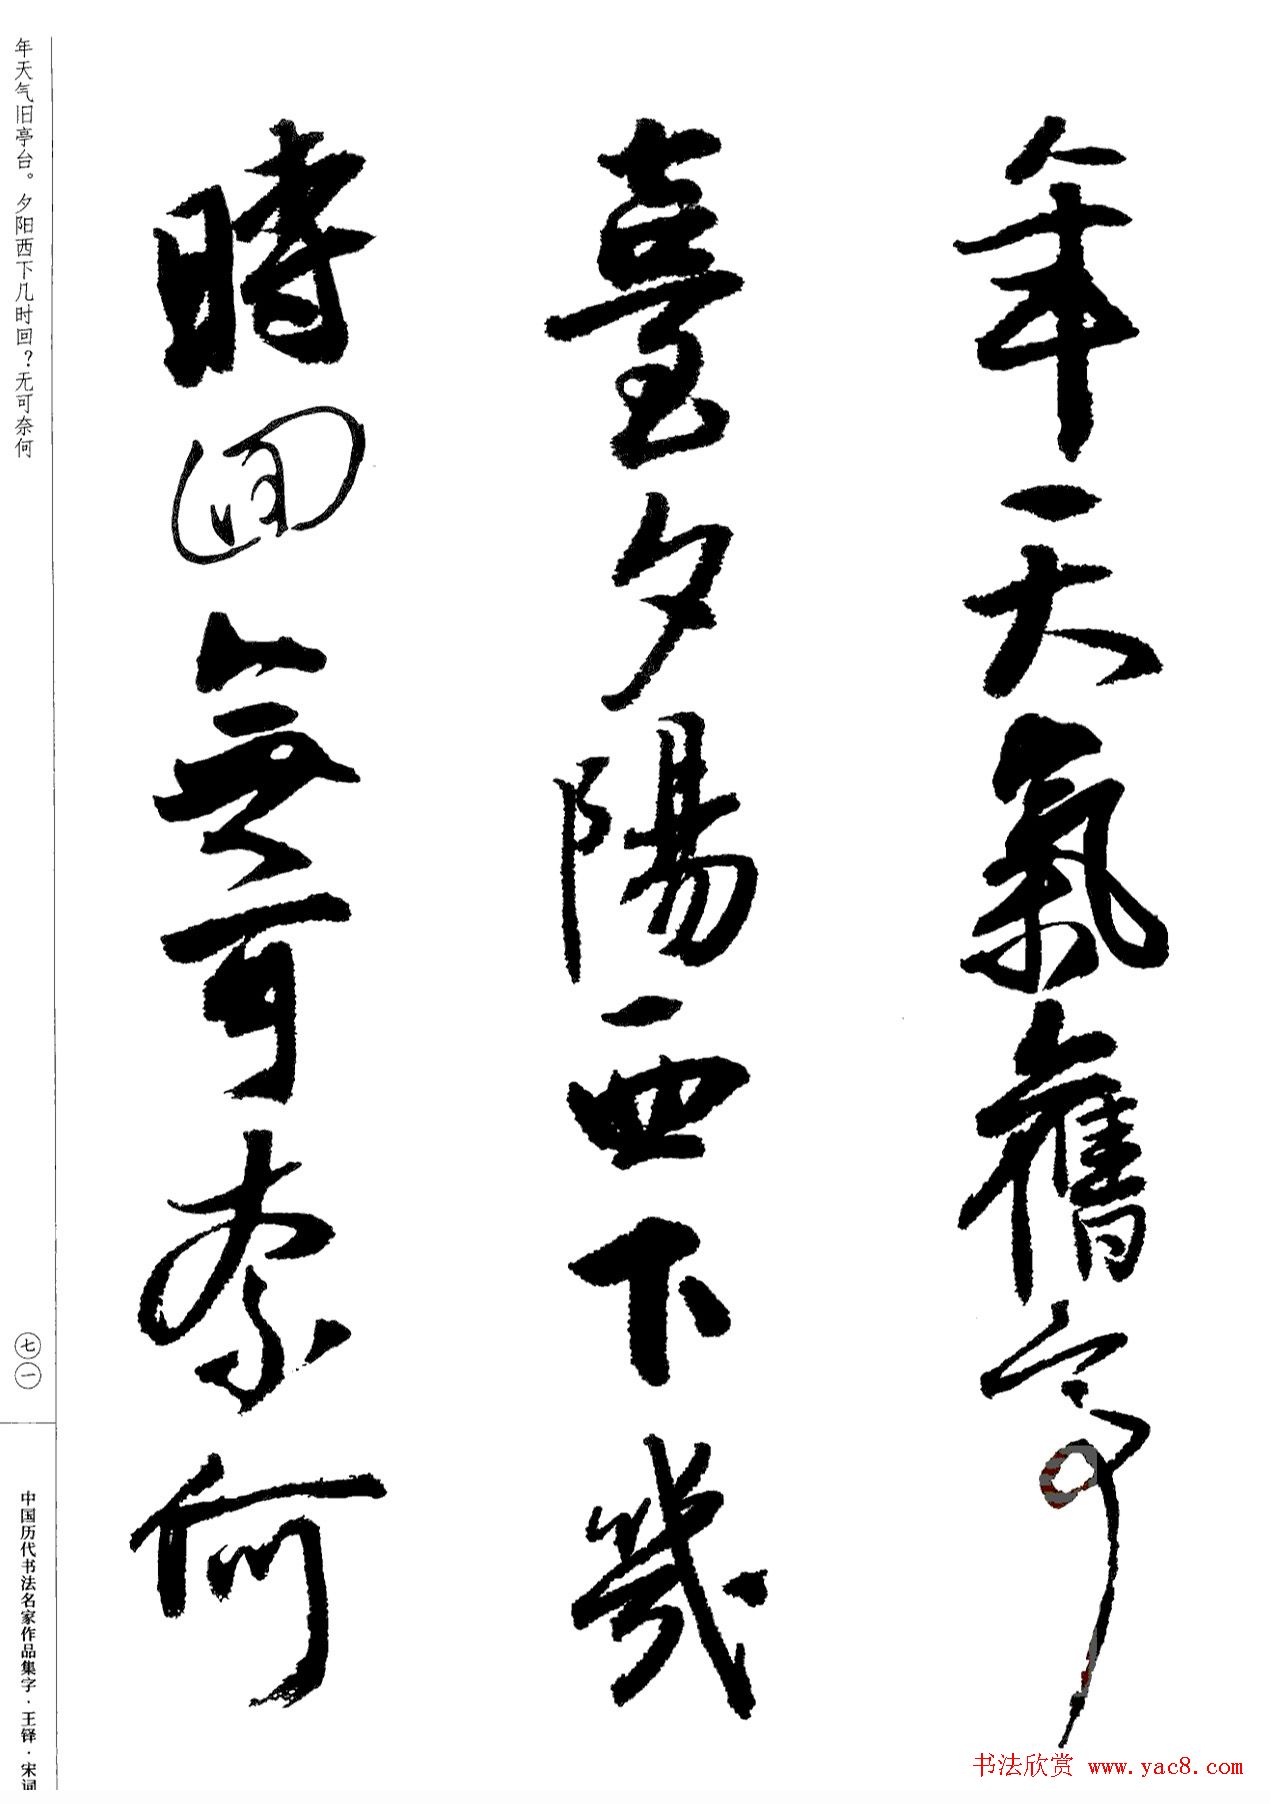 年天氣舊亭
臺夕陽西下幾
時回無可奈何
年天气旧亭台。夕阳西下几时回？无可奈何
七一
中国历代书法名家作品集字·王铎·宋词
书法欣赏 www.yac8.com